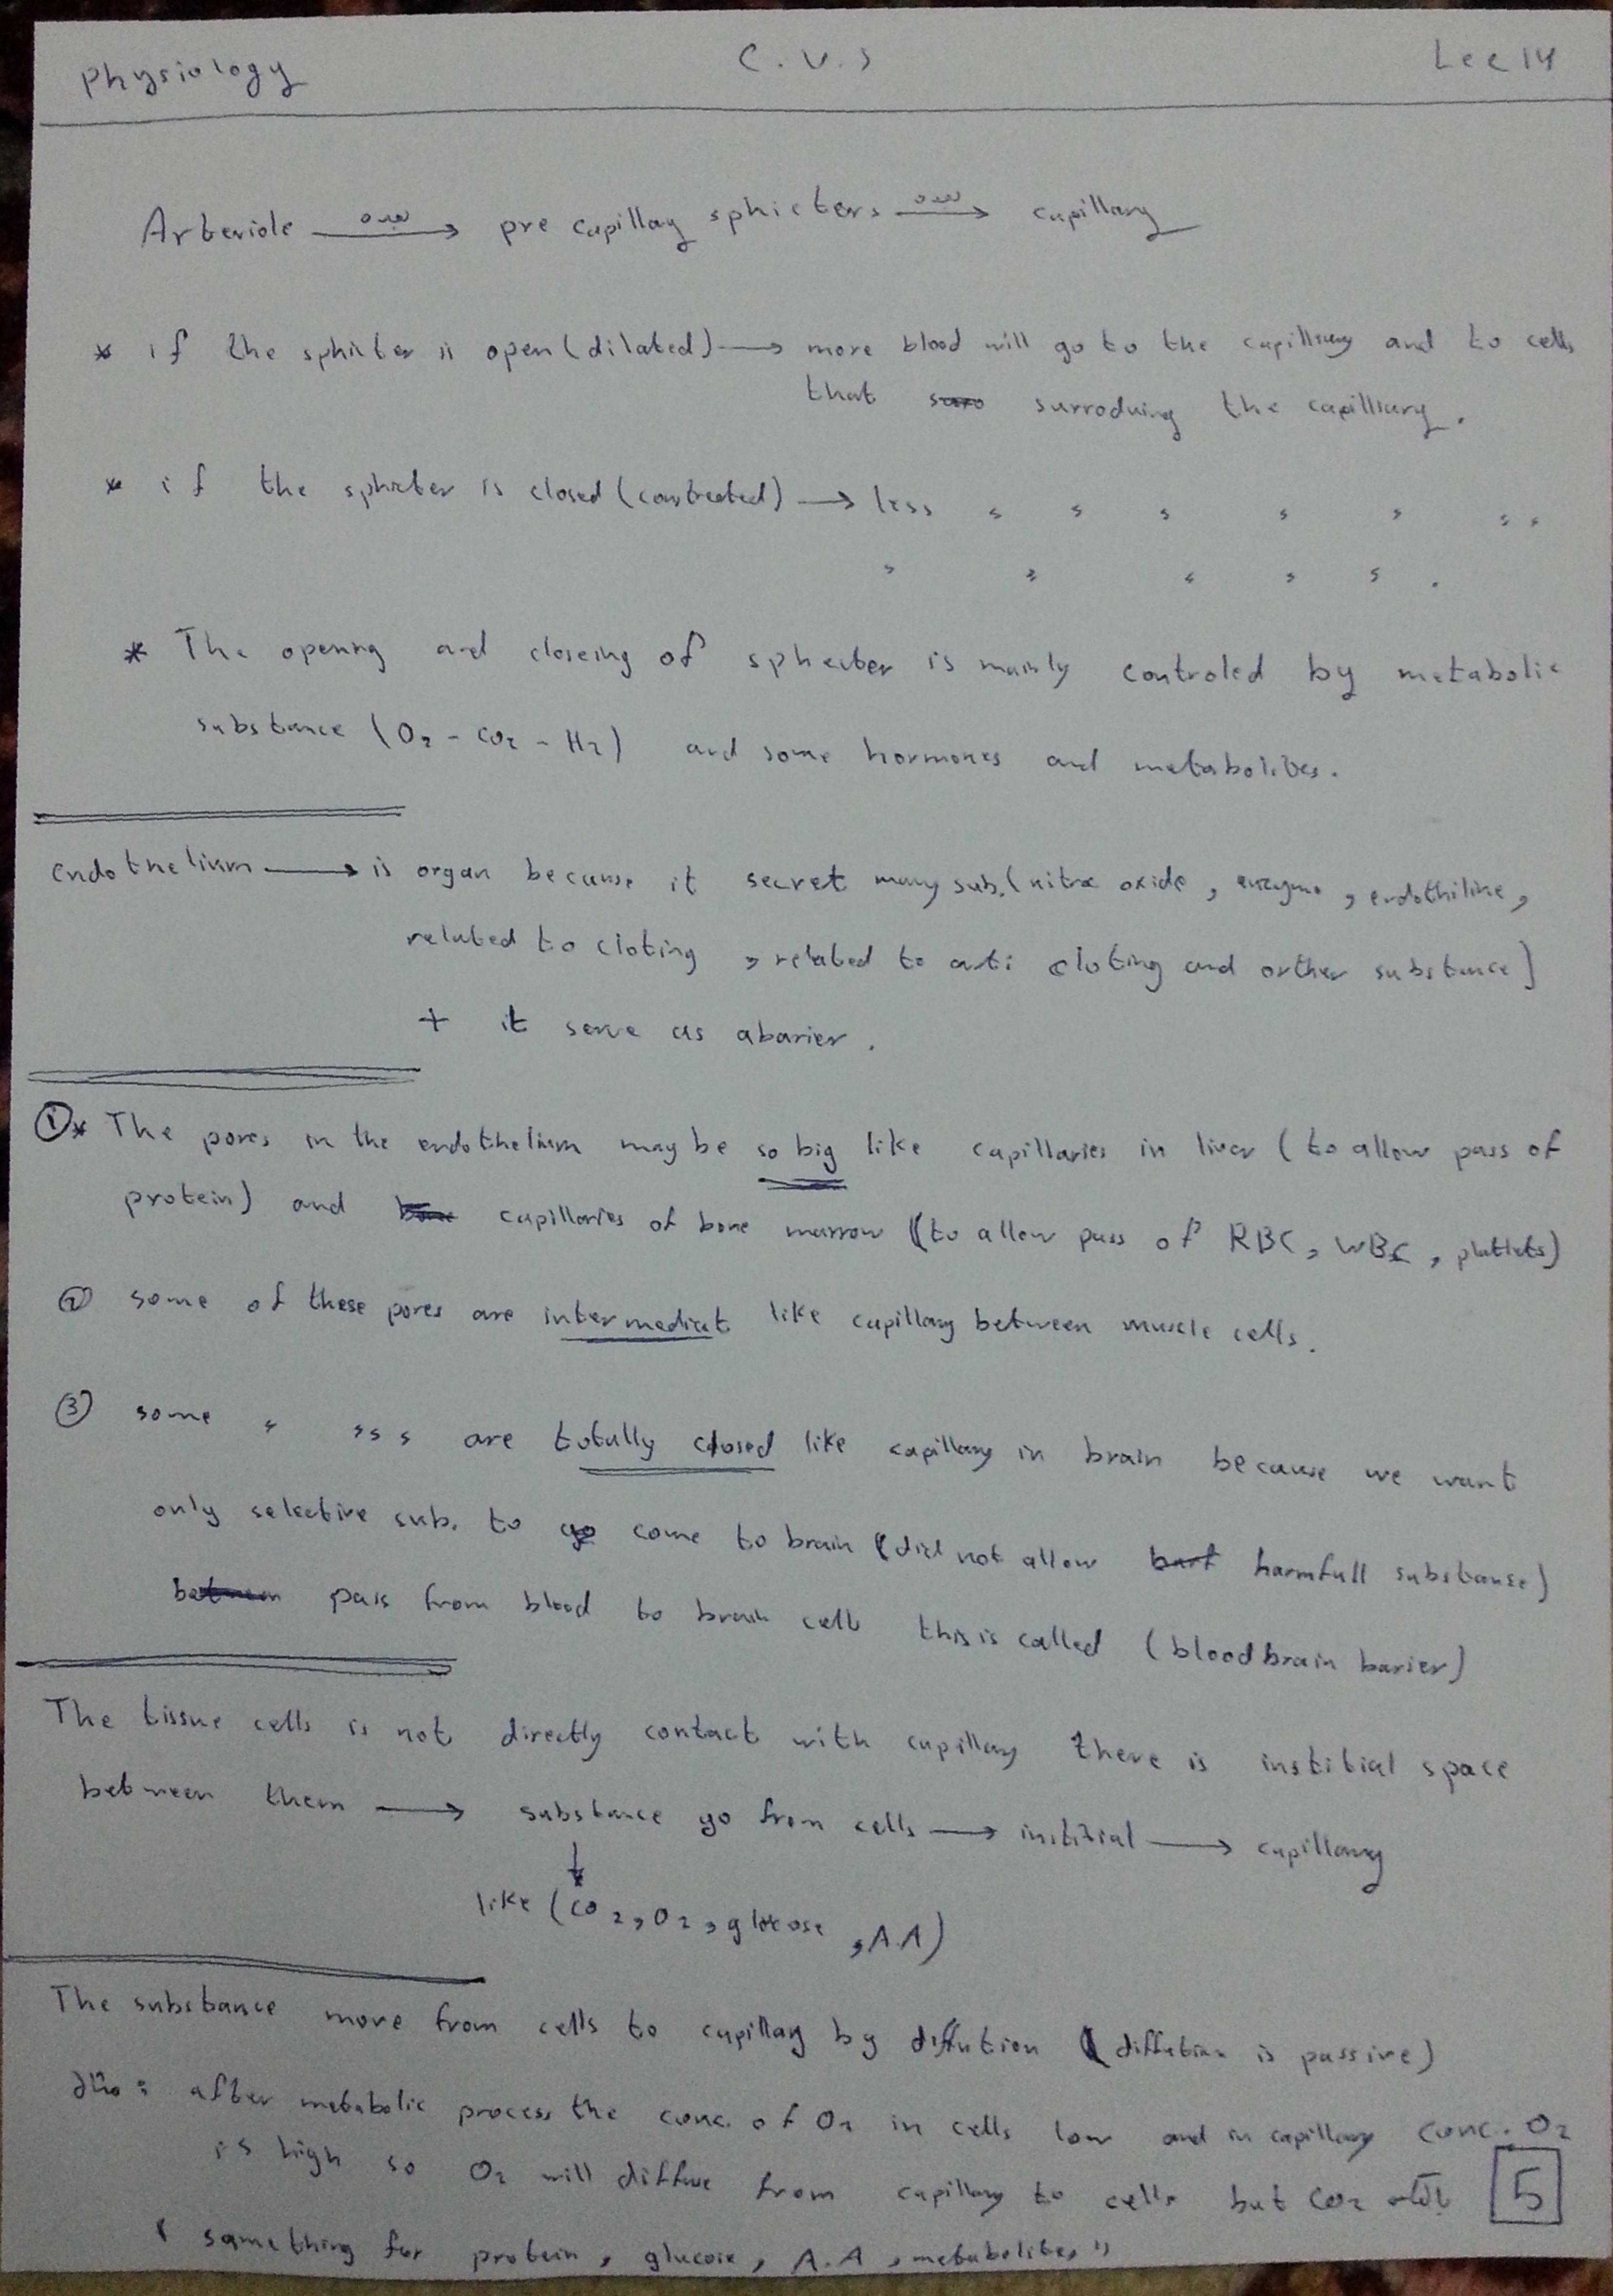 physiology C.V.S Lec 14
Arteriole ⟶ pre capillay sphicters ⟶ capillary
* if the sphicter is open (dilated) → more blood will go to the capillary and to cells
that surroduing the capilliary.
* if the sphicter is closed (constrected) → less " " " " " " "
" " " " " .
* The opening and closeing of sphecter is mainly controled by metabolic
substance (O₂ - CO₂ - H₂) and some hormones and metabolites.
endothelium → is organ because it secret many sub. (nitric oxide, enzyme, endothiline,
related to cloting, related to anti cloting and orther substance)
+ it serve as abarier.
① * The pores in the endothelium may be so big like capillaries in liver (to allow pass of
protein) and capillaries of bone marrow (to allow pass of RBC, WBC, platlets)
② some of these pores are intermediat like capillary between muscle cells.
③ some " " " " are totally closed like capillary in brain because we want
only selective sub. to come to brain (did not allow harmfull substance)
pass from blood to brain cells this is called (blood brain barier)
The tissue cells is not directly contact with capillary there is institial space
between them → substance go from cells → institial → capillary
↓
like (CO₂, O₂, glucose, A.A)
The substance move from cells to capillary by diffution (diffution is passive)
مثال : after metabolic process the conc. of O₂ in cells low and in capillary conc. O₂
is high so O₂ will diffuse from capillary to cells but CO₂
5
" something for protein, glucose, A.A, metabolites "